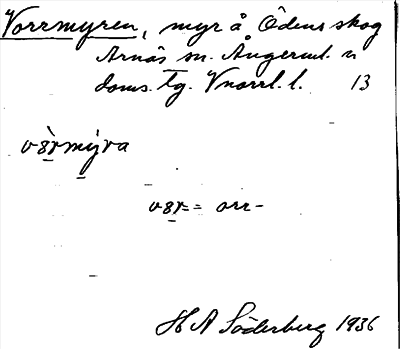 Vorrmyren, myr å Ödens skog
Arnäs sn. Ångerml. n
doms. tg. Vnorrl. l. 13
vèrmỳra
ver- = orr-
H A Söderberg 1936